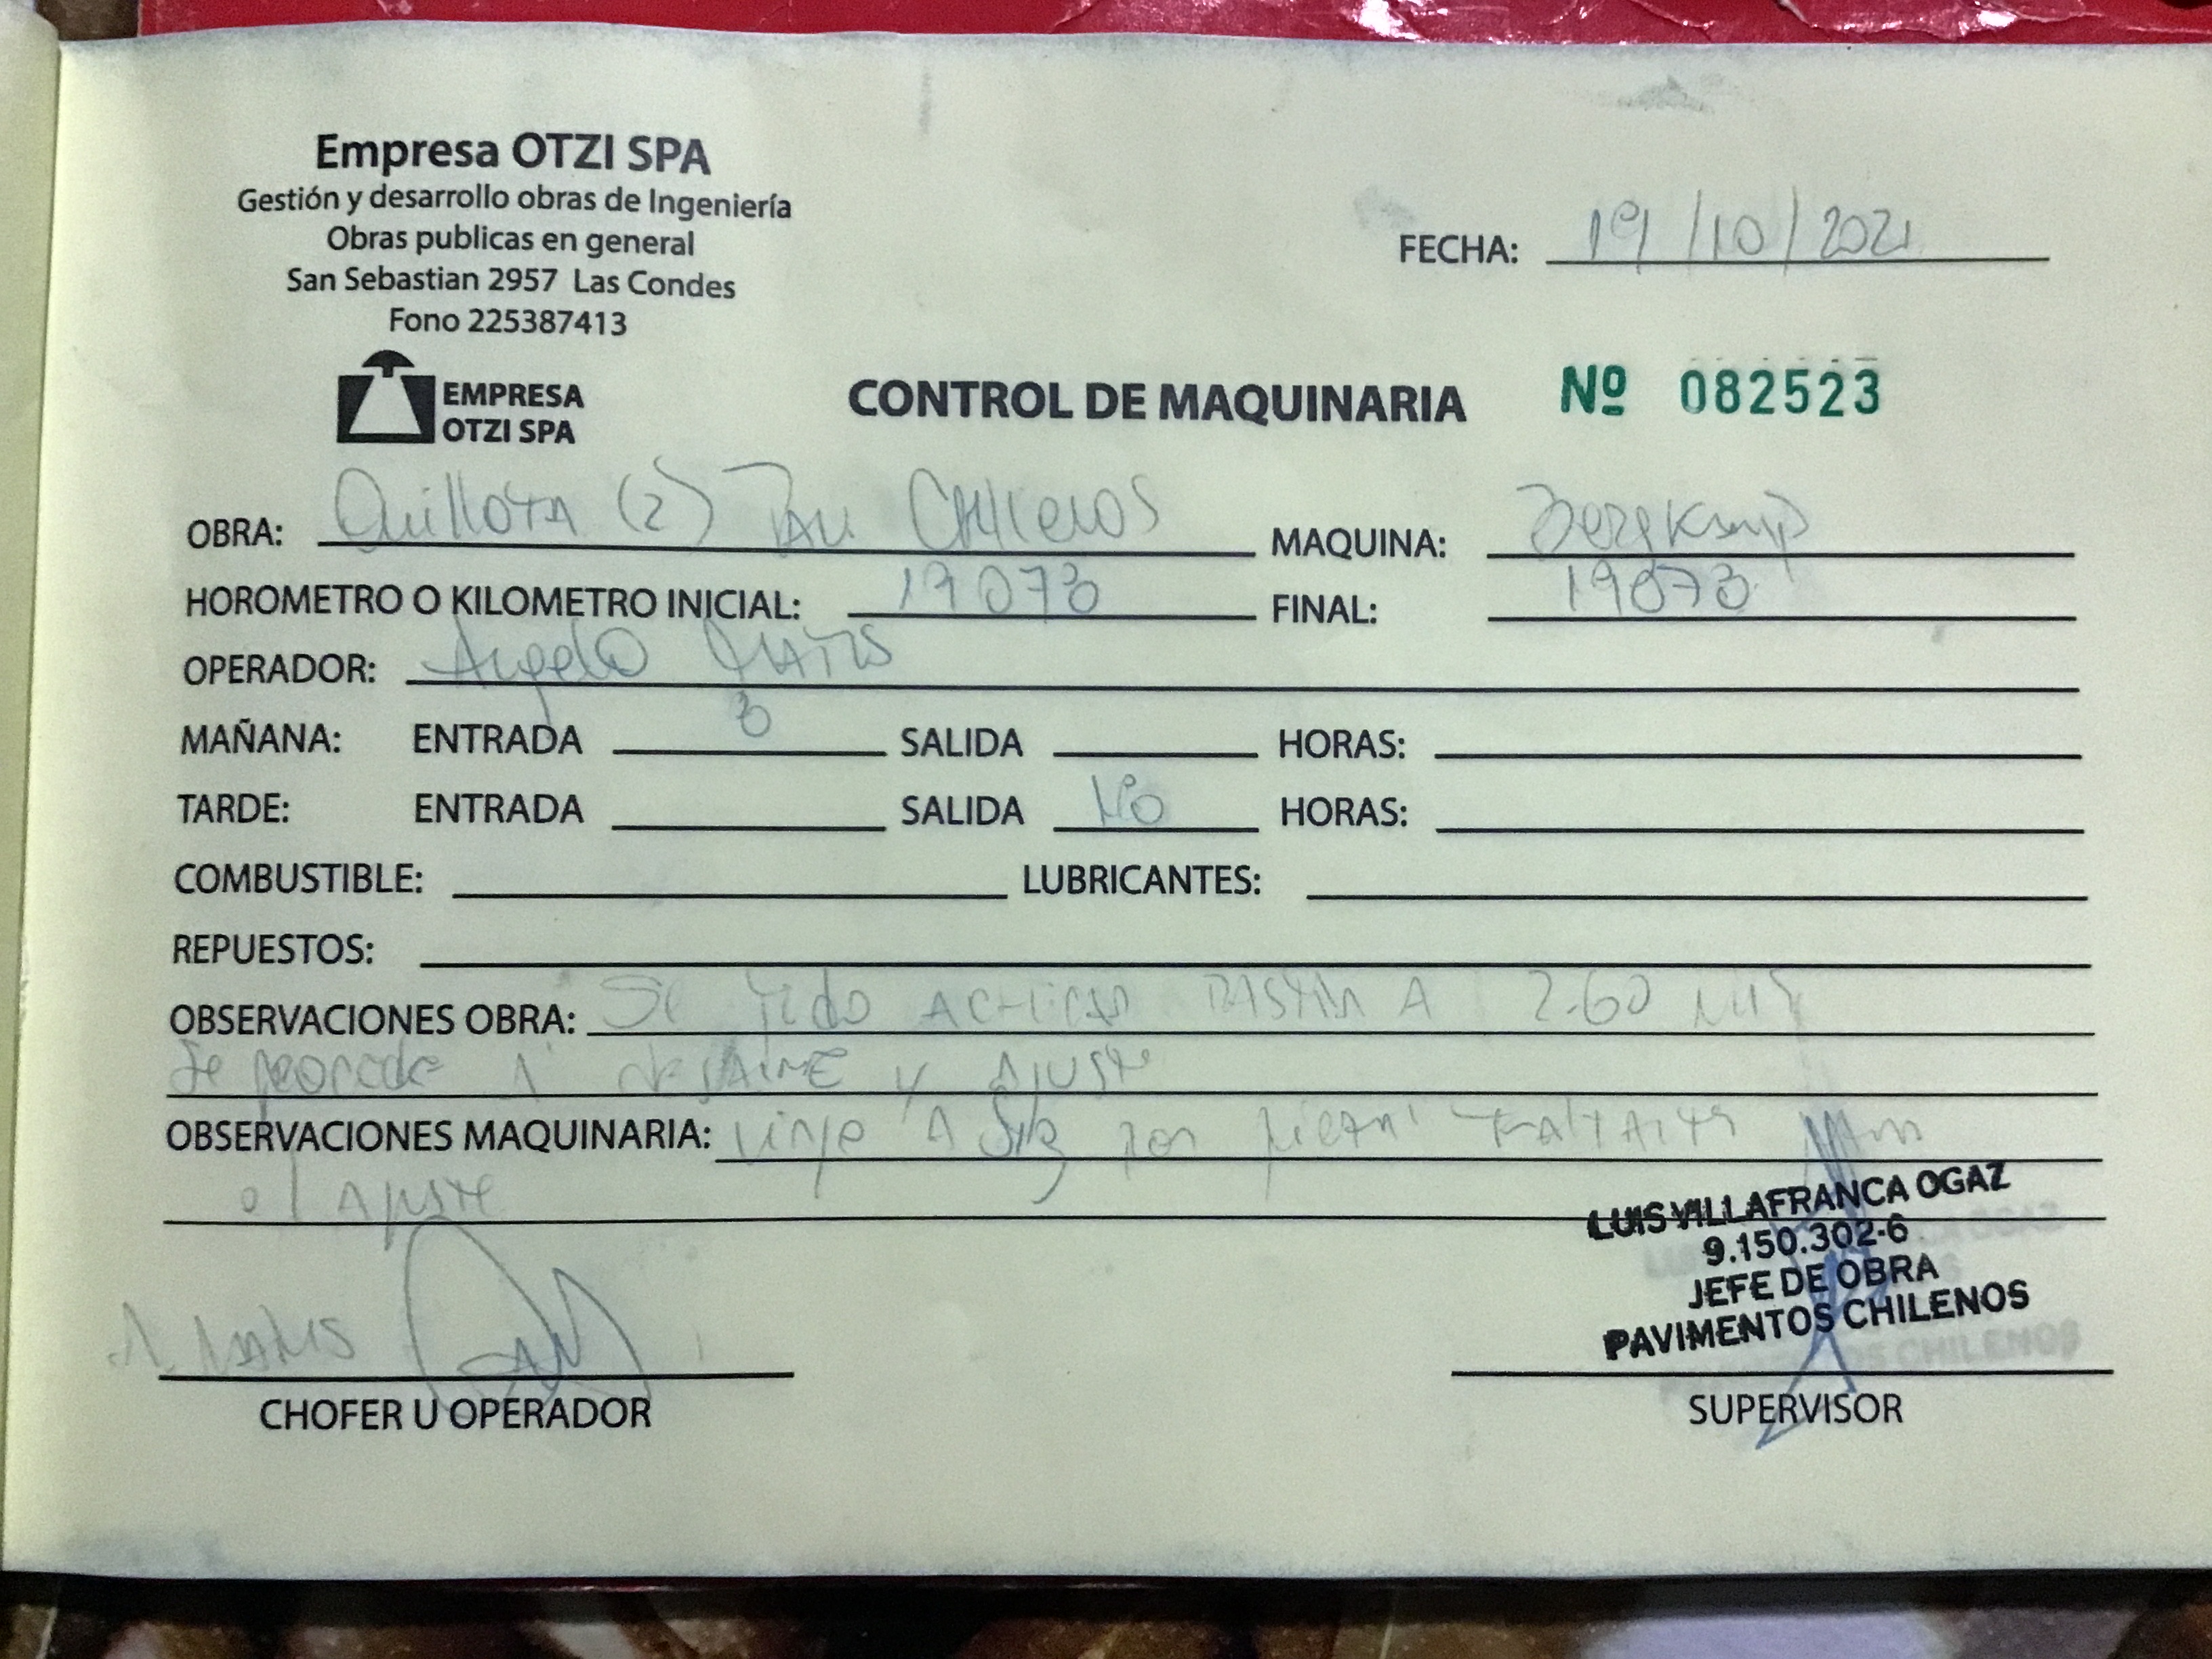 Empresa OTZI SPA
Gestión y desarrollo obras de Ingeniería
Obras publicas en general
San Sebastian 2957 Las Condes
Fono 225387413
EMPRESA
OTZI SPA
FECHA: 19/10/2021
CONTROL DE MAQUINARIA Nº 082523
OBRA: Quillota (2) Pav. Chilenos MAQUINA: Bergkamp
HOROMETRO O KILOMETRO INICIAL: 19073 FINAL: 19073
OPERADOR: Angelo
MAÑANA: ENTRADA 8 SALIDA HORAS:
TARDE: ENTRADA SALIDA NO HORAS:
COMBUSTIBLE: LUBRICANTES:
REPUESTOS:
OBSERVACIONES OBRA: Se Pido ACHICAR A 2.60
Se procede A y AJUSTE
OBSERVACIONES MAQUINARIA: viaje A por
el AJUSTE
LUIS VILLAFRANCA OGAZ
9.150.302-6
JEFE DE OBRA
PAVIMENTOS CHILENOS
CHOFER U OPERADOR
SUPERVISOR